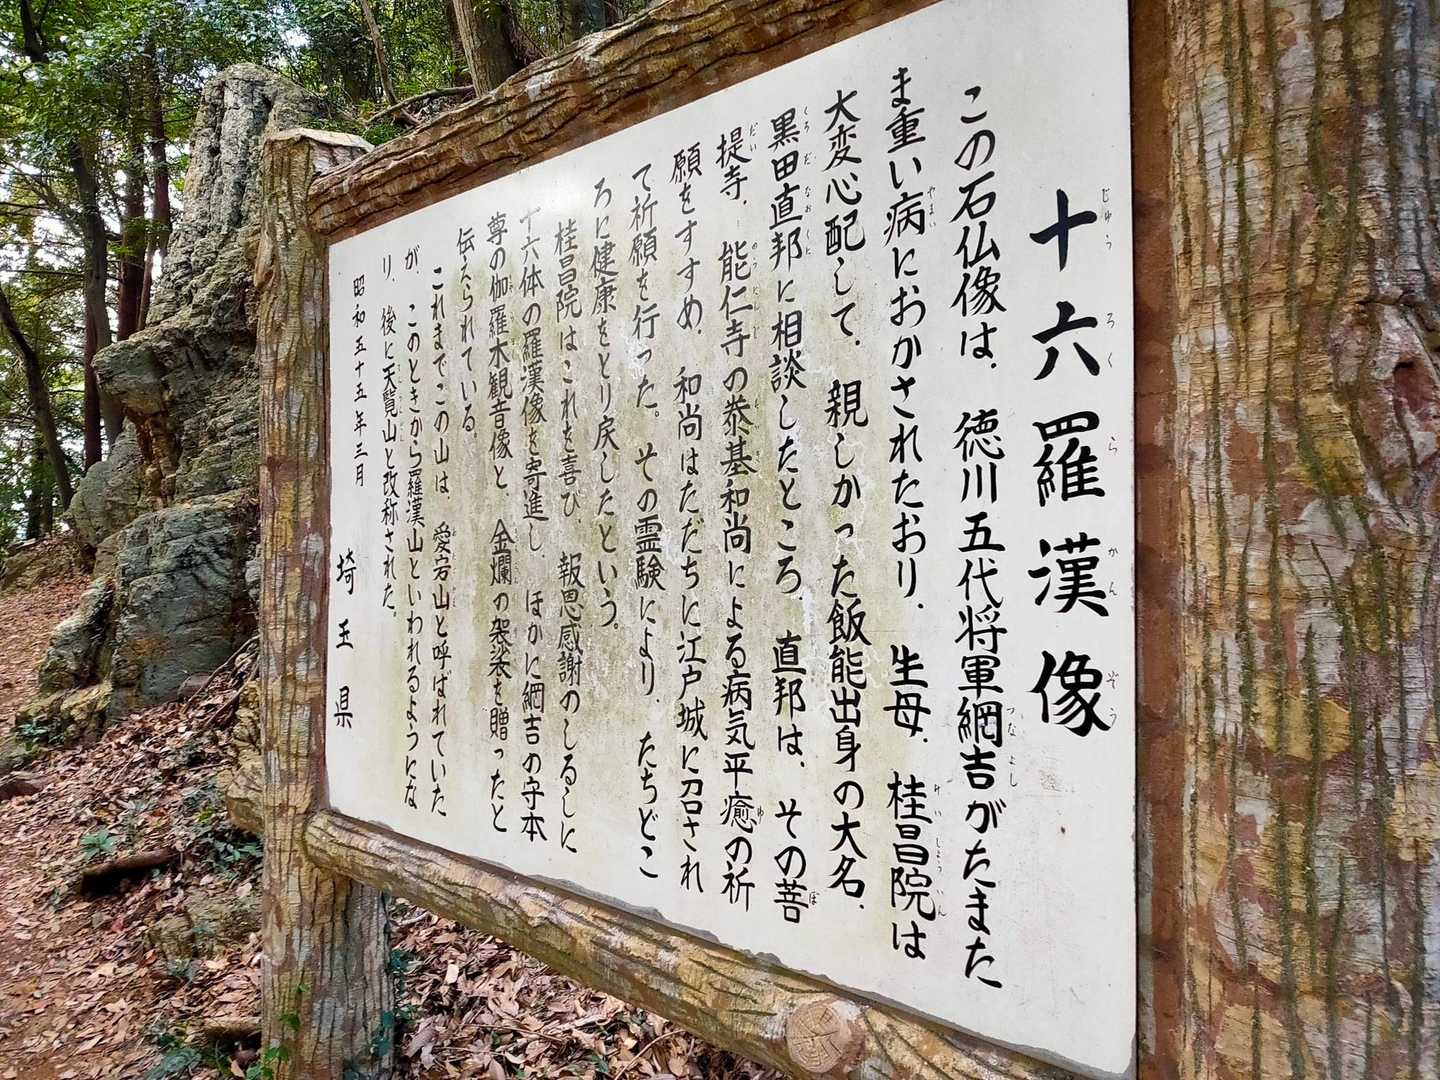 十六羅漢像
じゅうろくらかんぞう
この石仏像は、徳川五代将軍綱吉がたまた
つなよし
ま重い病におかされたおり、生母、桂昌院は
やまい
けいしょういん
大変心配して、親しかった飯能出身の大名、
黒田直邦に相談したところ、直邦は、その菩
くろだなおくに
ぼ
提寺、能仁寺の泰基和尚による病気平癒の祈
だい
のうにんじ
ゆ
願をすすめ、和尚はただちに江戸城に召され
て祈願を行った。その霊験により、たちどこ
ろに健康をとり戻したという。
桂昌院はこれを喜び、報恩感謝のしるしに
十六体の羅漢像を寄進し、ほかに綱吉の守本
尊の伽羅木観音像と、金爛の袈裟を贈ったと
伝えられている。
これまでこの山は、愛宕山と呼ばれていた
が、このときから羅漢山といわれるようにな
り、後に天覧山と改称された。
昭和五十五年三月
埼玉県